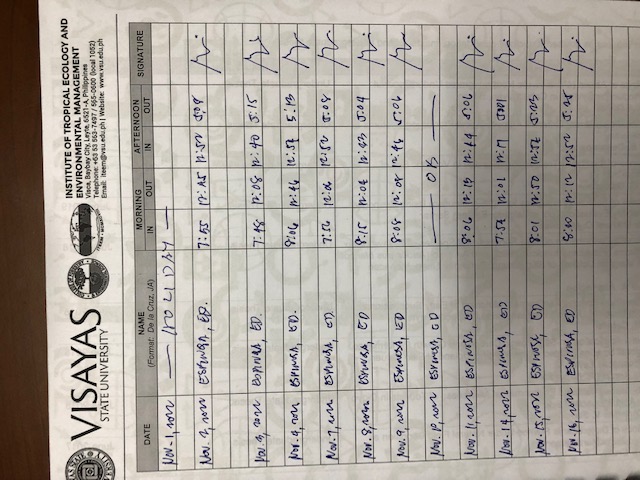 VISAYAS
STATE UNIVERSITY
INSTITUTE OF TROPICAL ECOLOGY AND
ENVIRONMENTAL MANAGEMENT
Visca, Baybay City, Leyte, 6521-A, Philippines
Telephone: +63 53 563-7497 / 565-0600 (local 1052)
Email: iteem@vsu.edu.ph | Website: www.vsu.edu.ph
DATE NAME MORNING AFTERNOON SIGNATURE
(Format: De la Cruz, JA) IN OUT IN OUT
Nov. 1, 2022 — HOLIDAY —
Nov. 2, 2022 ESPINOSA, ED. 7:55 12:52
Nov. 3, 2022 ESPINOSA, ED. 7:48 12:08 12:40 5:15
Nov. 4, 2022 ESPINOSA, ED. 8:06 12:46 5:13
Nov. 7, 2022 ESPINOSA, ED 7:56 12:06 12:52 5:08
Nov. 8, 2022 ESPINOSA, ED 8:15 12:02 12:43 5:04
Nov. 9, 2022 ESPINOSA, ED 8:08 12:08 12:46 5:06
Nov. 10, 2022 ESPINOSA, ED — OB —
Nov. 11, 2022 ESPINOSA, ED 8:06 12:13 12:44 5:06
Nov. 14, 2022 ESPINOSA, ED 7:52 12:01 12:17 5:01
Nov. 15, 2022 ESPINOSA, ED 8:01 12:50 12:52 5:23
Nov. 16, 2022 ESPINOSA, ED 8:00 12:12 12:52 5:25